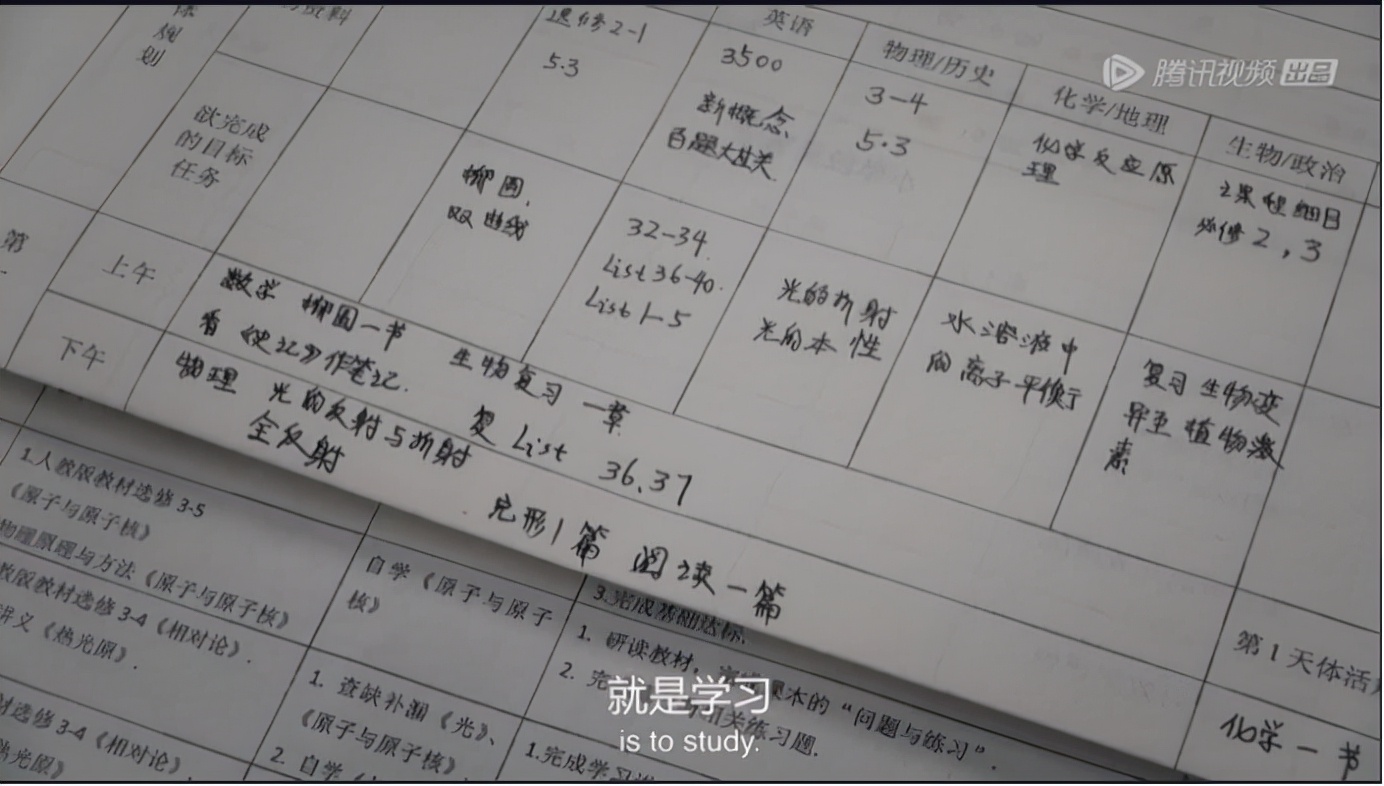 规
划
欲完成
的目标
任务
选修2-1
5·3
英语
3500
新概念
百题大过关
物理/历史
3-4
5·3
化学/地理
化学反应原
理
生物/政治
2课程细目
必修2,3
腾讯视频 出品
椭圆,
双曲线
32-34
List 36-40.
List 1-5
光的折射
光的本性
水溶液中
的离子平衡
复习生物变
异至植物激
素
第
上午
数学 椭圆一节 生物复习一章
看《史记》作笔记. 复List 36、37
下午
物理 光的反射与折射
全反射
完形1篇 阅读一篇
第1天体活
化学一节
1.人教版教材选修3-5
《原子与原子核》
物理原理与方法《原子与原子核》
教版教材选修3-4《相对论》.
讲义《热光原》.
材选修3-4《相对论》,
热光原》
自学《原子与原子
核》
1. 查缺补漏《光》、
《原子与原子核》.
2. 自学
3.完成基础达标.
1. 研读教材,
本的“问题与练习”.
2. 完
相关练习题.
1.完成学习
就是学习
is to study.